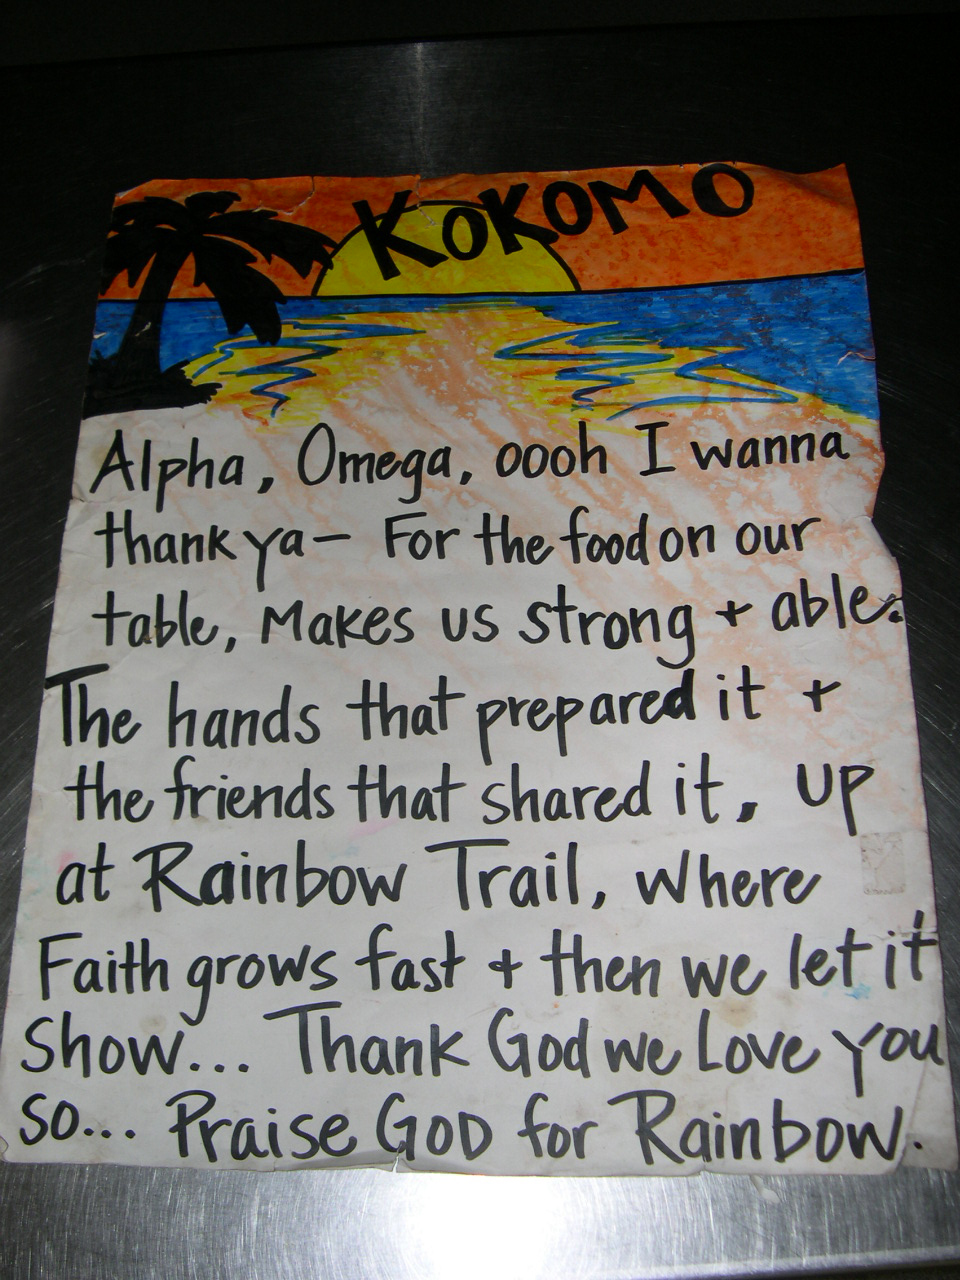 KOKOMO
Alpha, Omega, oooh I wanna
thank ya— For the food on our
table, Makes us strong + able.
The hands that prepared it +
the friends that shared it, up
at Rainbow Trail, where
Faith grows fast + then we let it
show... Thank God we Love you
so... Praise GOD for Rainbow.